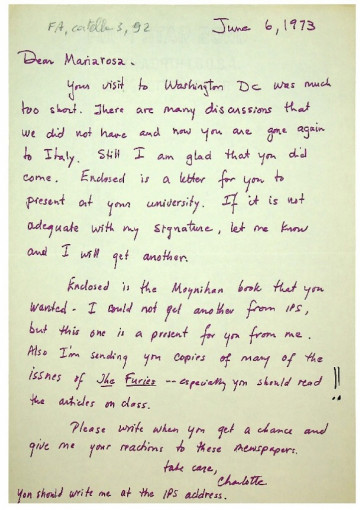 FA, cartella 3, 92
June 6, 1973
Dear Mariarosa -
Your visit to Washington DC was much
too short. There are many discussions that
we did not have and now you are gone again
to Italy. Still I am glad that you did
come. Enclosed is a letter for you to
present at your university. If it is not
adequate with my signature, let me know
and I will get another.
Enclosed is the Moynihan book that you
wanted - I could not get another from IPS,
but this one is a present for you from me.
Also I'm sending you copies of many of the
issues of The Furies -- especially you should read !!
the articles on class.
Please write when you get a chance and
give me your reactions to these newspapers.
take care,
Charlotte
You should write me at the IPS address.